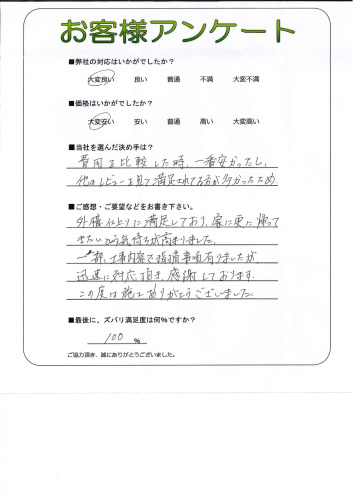 お客様アンケート
■弊社の対応はいかがでしたか？
大変良い 良い 普通 不満 大変不満
■価格はいかがでしたか？
大変安い 安い 普通 高い 大変高い
■当社を選んだ決め手は？
費用を比較した時、一番安かったし、
他のレビューを見て満足されてる方が多かったため
■ご感想・ご要望などをお書き下さい。
外構仕上りに満足しており、家に更に帰って
きたいという気持ちが高まりました。
一部、工事内容で指摘事項有りましたが
迅速に対応頂き、感謝しております。
この度は施工ありがとうございました。
■最後に、ズバリ満足度は何%ですか？
100 %
ご協力頂き、誠にありがとうございました。